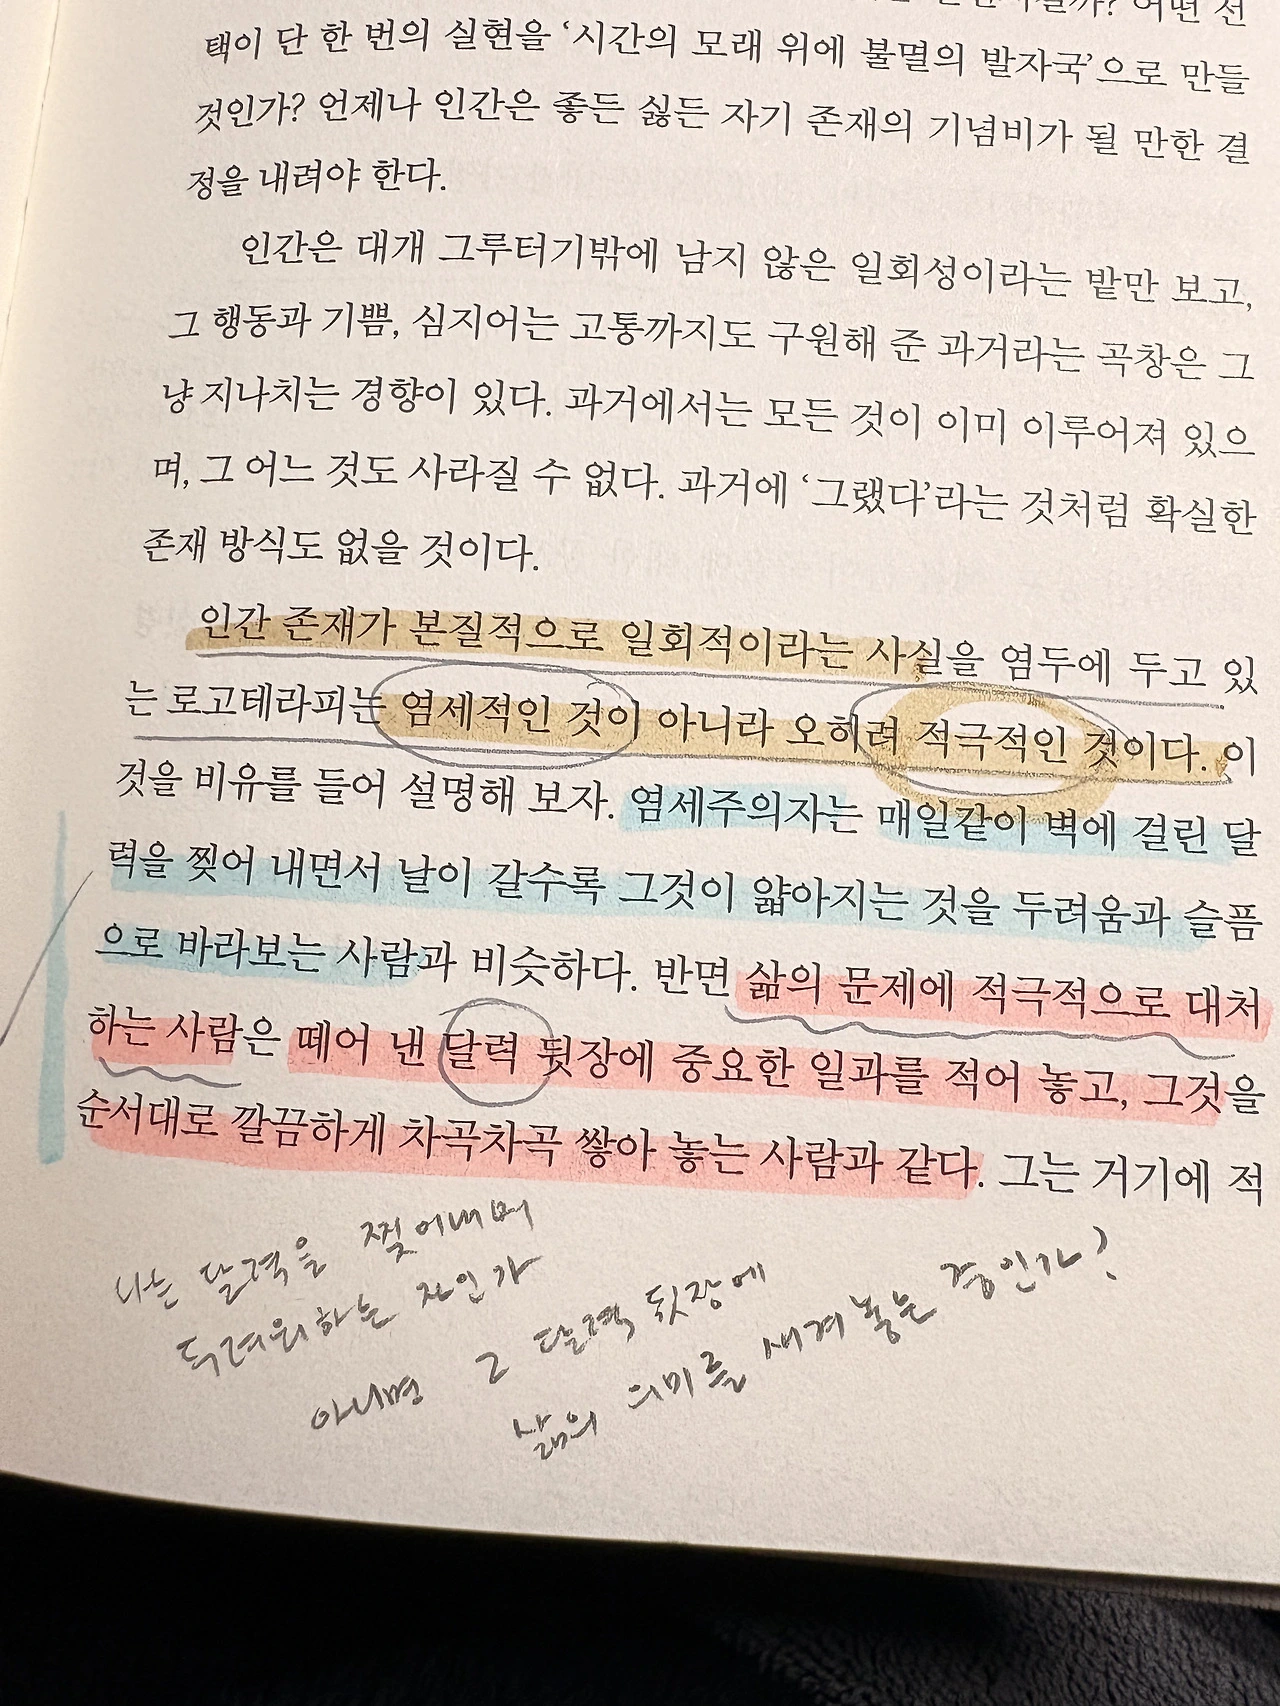 어떤 선
택이 단 한 번의 실현을 ‘시간의 모래 위에 불멸의 발자국’으로 만들
것인가? 언제나 인간은 좋든 싫든 자기 존재의 기념비가 될 만한 결
정을 내려야 한다.
인간은 대개 그루터기밖에 남지 않은 일회성이라는 밭만 보고,
그 행동과 기쁨, 심지어는 고통까지도 구원해 준 과거라는 곡창은 그
냥 지나치는 경향이 있다. 과거에서는 모든 것이 이미 이루어져 있으
며, 그 어느 것도 사라질 수 없다. 과거에 ‘그랬다’라는 것처럼 확실한
존재 방식도 없을 것이다.
인간 존재가 본질적으로 일회적이라는 사실을 염두에 두고 있
는 로고테라피는 염세적인 것이 아니라 오히려 적극적인 것이다. 이
것을 비유를 들어 설명해 보자. 염세주의자는 매일같이 벽에 걸린 달
력을 찢어 내면서 날이 갈수록 그것이 얇아지는 것을 두려움과 슬픔
으로 바라보는 사람과 비슷하다. 반면 삶의 문제에 적극적으로 대처
하는 사람은 떼어 낸 달력 뒷장에 중요한 일과를 적어 놓고, 그것을
순서대로 깔끔하게 차곡차곡 쌓아 놓는 사람과 같다. 그는 거기에 적
나는 달력을 찢어내며
두려워하는 자인가
아니면 그 달력 뒷장에
삶의 의미를 새겨놓는 중인가?